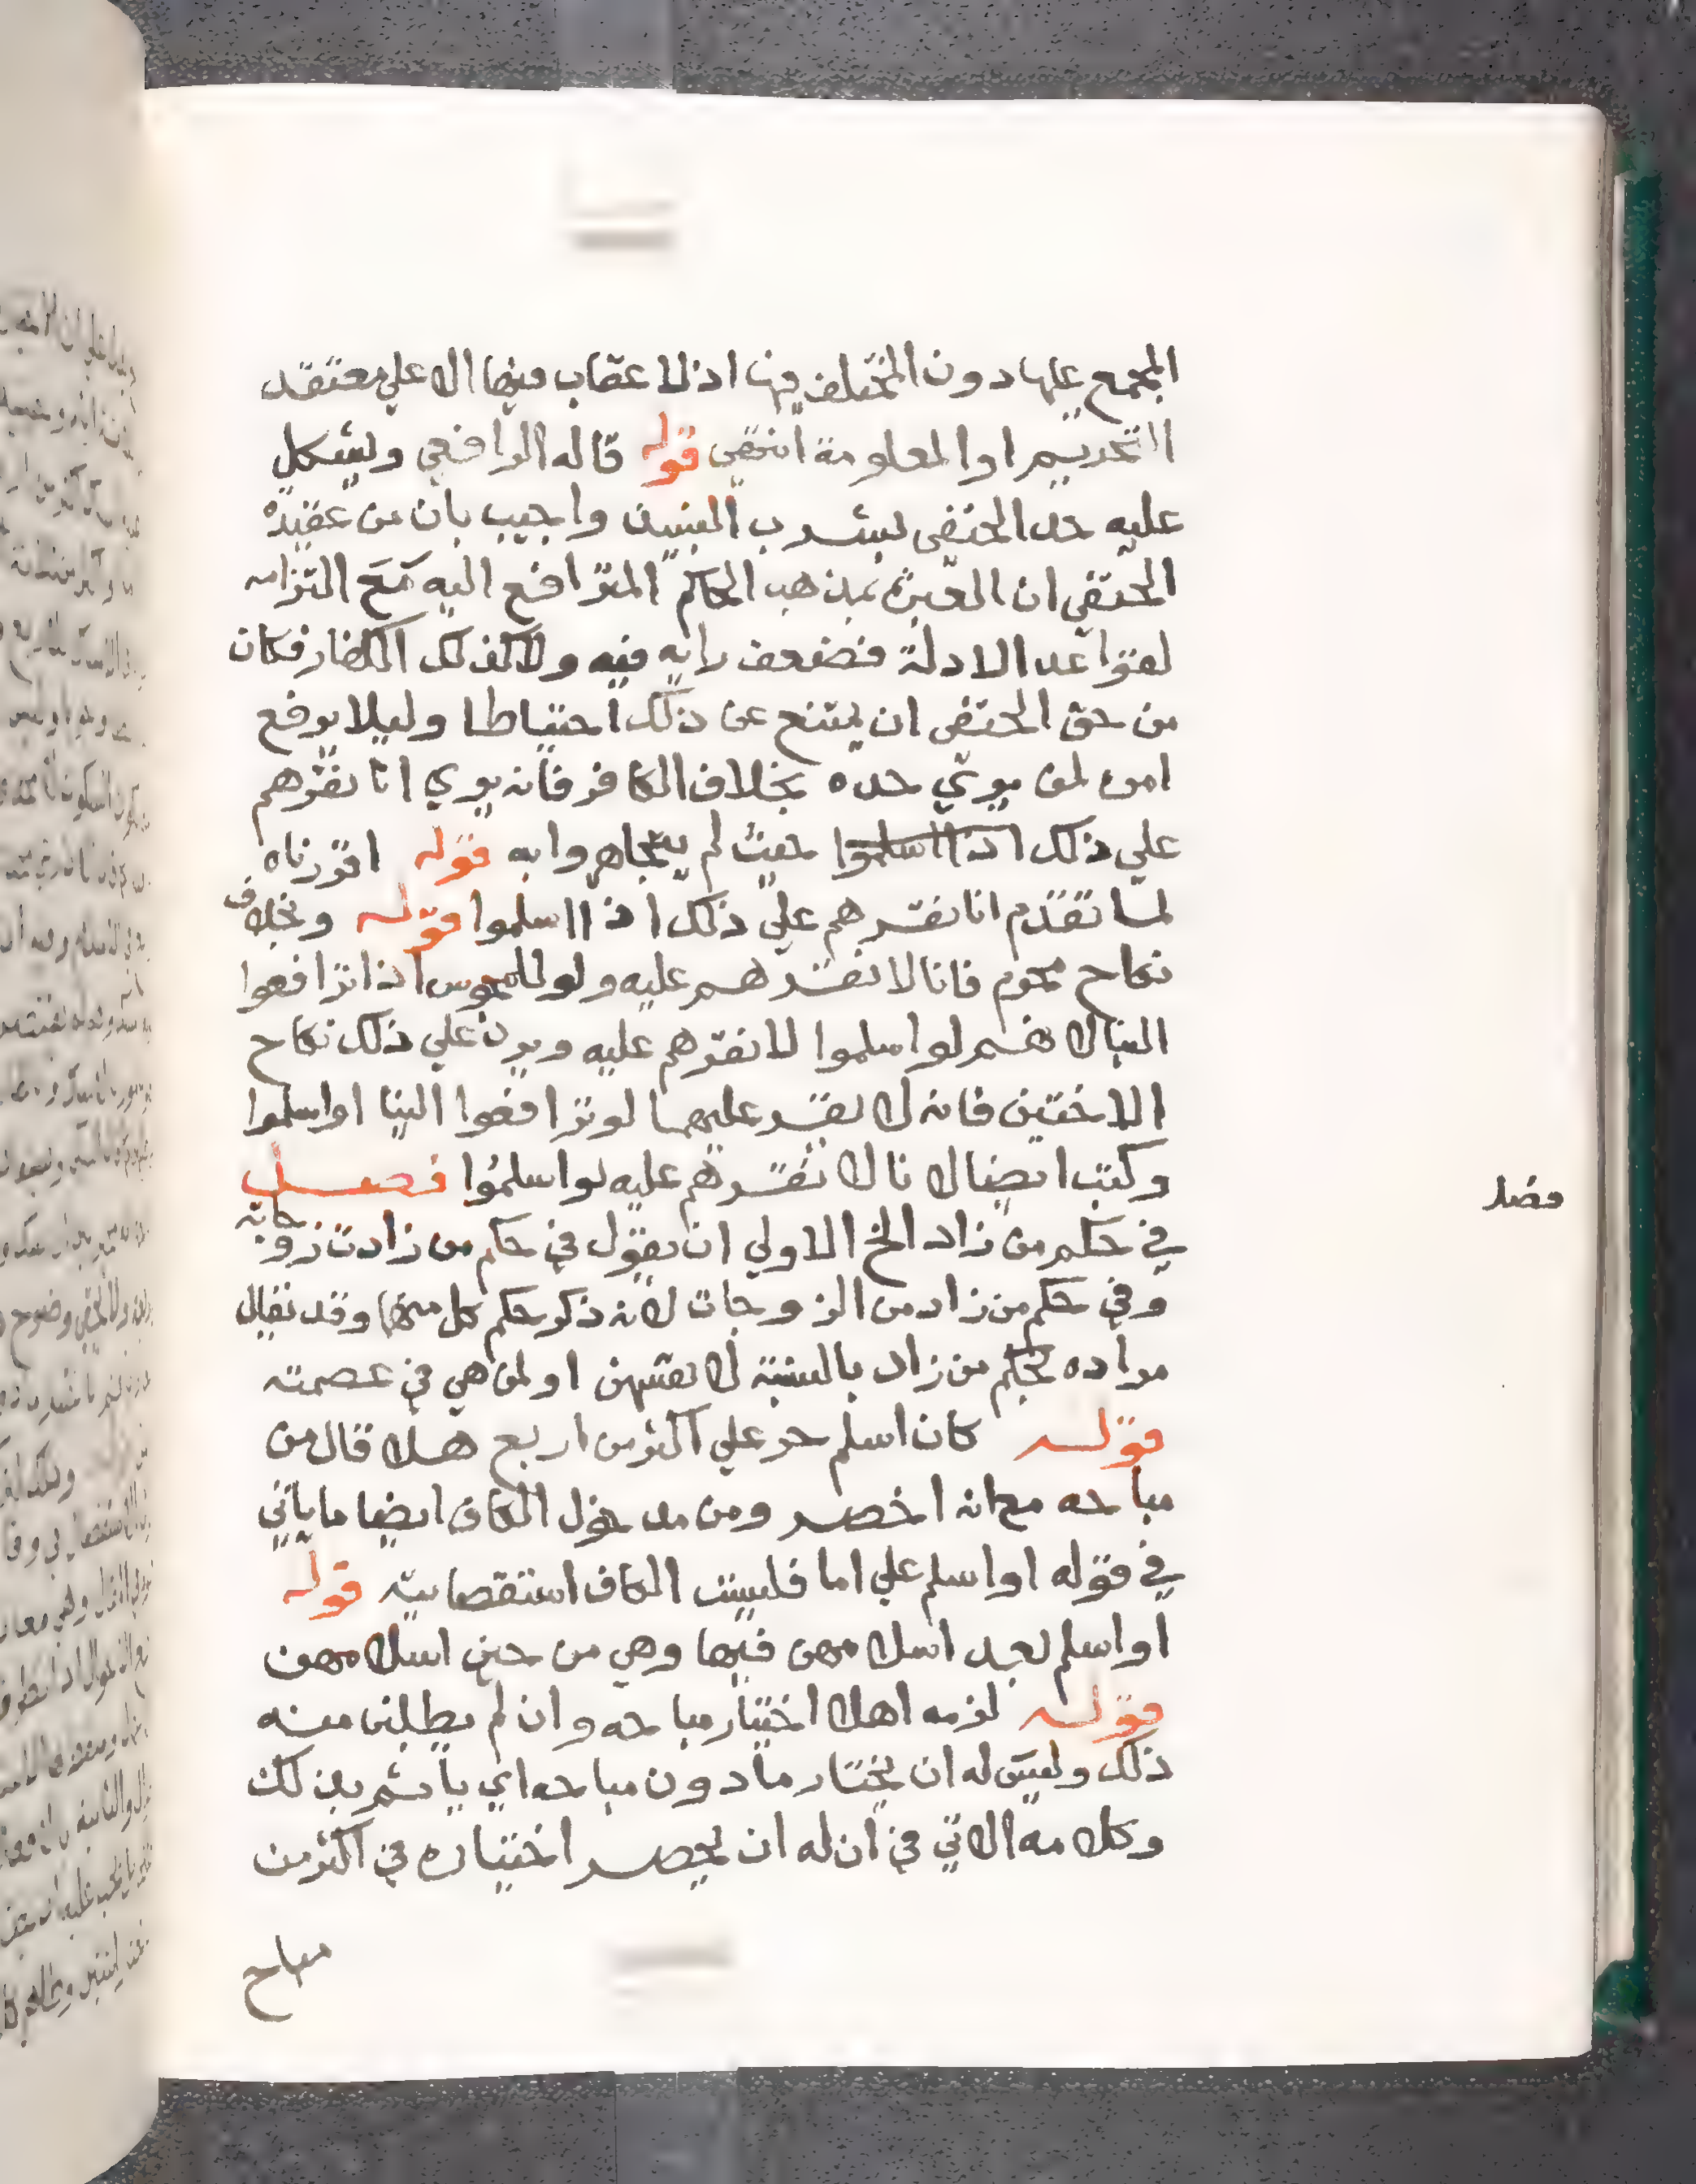 المجمع عليها دون المختلف فيها اذ لا عقاب فيها الا علي معتقد
التحريم او المعلومة انتهي قوله قاله الرافعي ويشكل
عليه حد الحنفي بشرب النبيذ واجيب بان من عقيدة
الحنفي ان العبرة بمذهب الحاكم المترافع اليه مع التزامه
لقواعد الادلة فضعف رايه فيه ولا كذلك الكفار فكان
من حق الحنفي ان يمتنع عن ذلك احتياطا وليلا يرفع
امره لمن يري حده بخلاف الكافر فانه يري انا نقرهم
علي ذلك اذا اسلموا حيث لم يتجاهروا به قوله اقررناه
لما تقدم انا نقرهم علي ذلك اذا اسلموا قوله وبخلاف
نكاح محرم فانا لا نقرهم عليه ولو للمجوس اذا ترافعوا
الينا لانهم لو اسلموا لا نقرهم عليه ويرد علي ذلك نكاح
الاختين فانه لا يقر عليهما لو ترافعوا الينا او اسلموا
وكتب ايضا لانا لا نقرهم عليه لو اسلموا فصل
في حكم من زاد الخ الاولي ان يقول في حكم من زادت زوجاته
وفي حكم من زاد من الزوجات لانه ذكر حكم كل منهما وقد يقال
مراده بحكم من زاد بالنسبة لانفسهن او لمن هي في عصمته
قوله كان اسلم حر علي اكثر من اربع هلا قال من
مباحه مع انه اخصر ومن مدخول الكاف ايضا ما ياتي
في قوله او اسلم علي اما فليست الكاف استقصائية قوله
او اسلم بعد اسلامهن فيها وهي من حين اسلامهن
قوله لزمه اهلا اختيار مباحه وان لم يطلبن منه
ذلك وليس له ان يختار ما دون مباحه اي ياثم بذلك
وكلامه الاتي في ان له ان يحصر اختياره في اكثر من
مباح
فصل